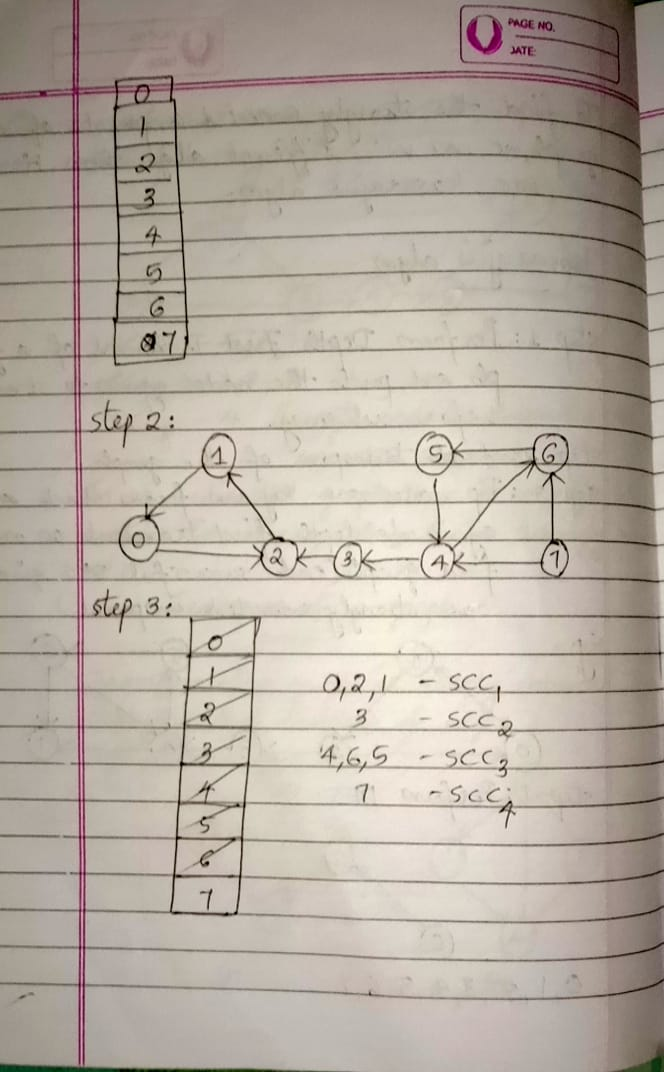 PAGE NO.
DATE:
0
1
2
3
4
5
6
7
step 2:
1 5 6
0 2 3 4 7
step 3:
0
1
2
3
4
5
6
7
0,2,1 - SCC1
3 - SCC2
4,6,5 - SCC3
7 - SCC4